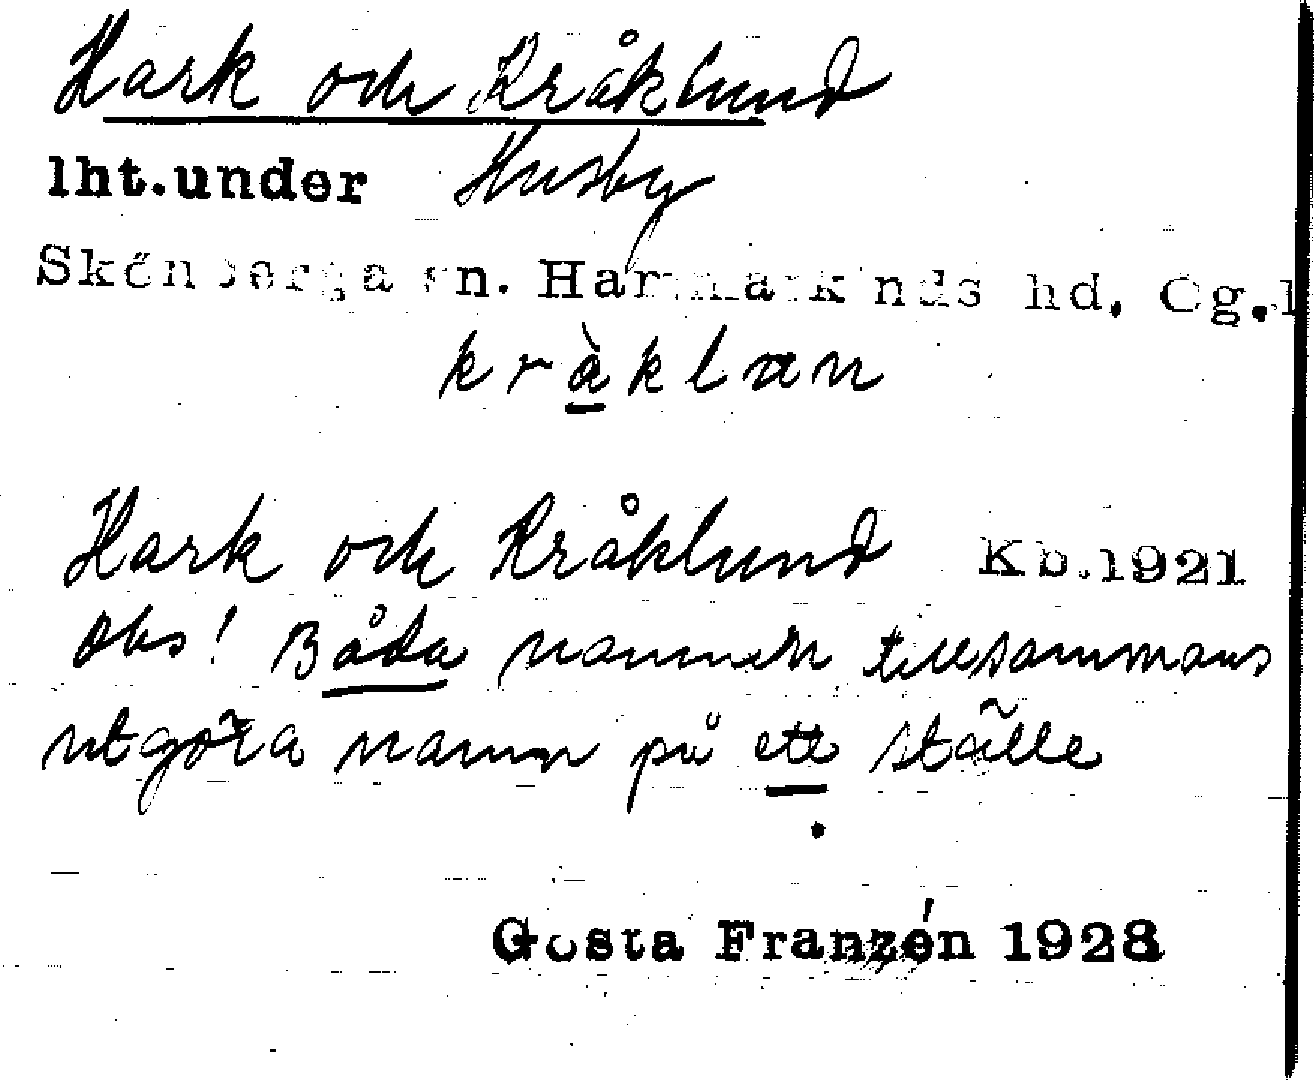 Hark och Kråklund
lht.under Husby
Skönberga sn. Hammarkinds hd, Ög.l
kràklan
Hark och Kråklund Kb.1921
Obs! Båda namnen tillsammans
utgöra namn på ett ställe
.
Gösta Franzén 1928